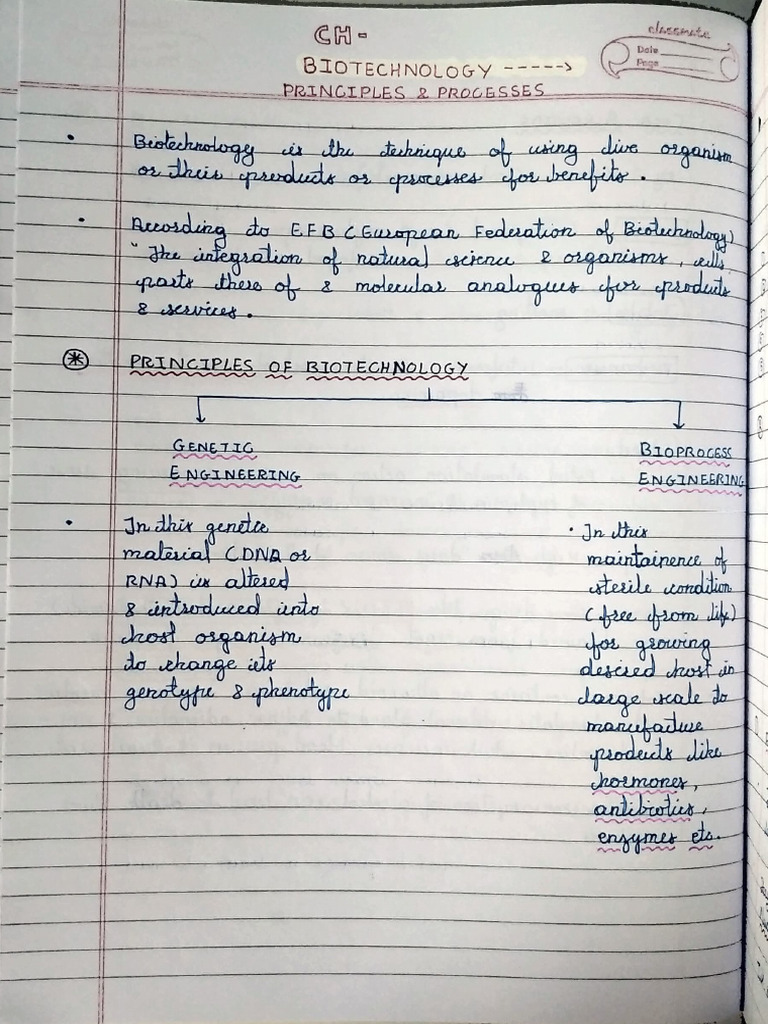 CH-
classmate
Date
Page
BIOTECHNOLOGY ----->
PRINCIPLES & PROCESSES
• Biotechnology is the technique of using live organism
or their products or processes for benefits.
• According to EFB (European Federation of Biotechnology)
"The integration of natural science & organisms, cells,
parts there of & molecular analogues for products
& services.
* PRINCIPLES OF BIOTECHNOLOGY
GENETIC
ENGINEERING
• In this genetic
material (DNA or
RNA) is altered
& introduced into
host organism
to change its
genotype & phenotype
BIOPROCESS
ENGINEERING
• In this
maintainence of
sterile condition
(free from life)
for growing
desired host in
large scale to
manufacture
products like
hormones,
antibiotics,
enzymes etc.